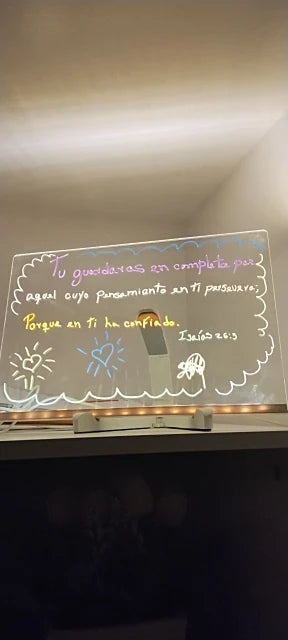 Tu guardaras en completa paz
aquel cuyo pensamiento en ti persevera;
Porque en ti ha confiado.
Isaías 26:3